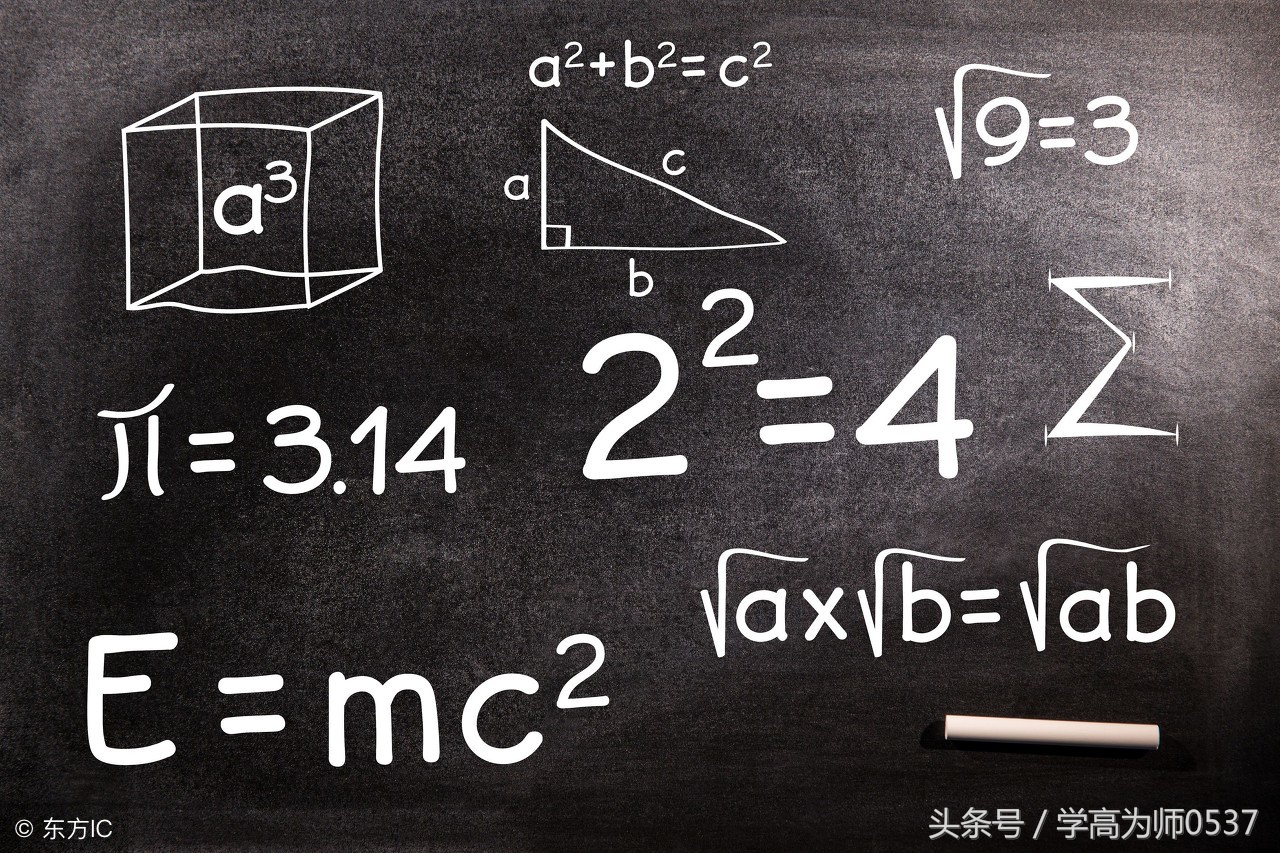 a²+b²=c²
√9=3
a³
a
c
b
2²=4
Σ
π=3.14
√a×√b=√ab
E=mc²
© 东方IC
头条号 / 学高为师0537